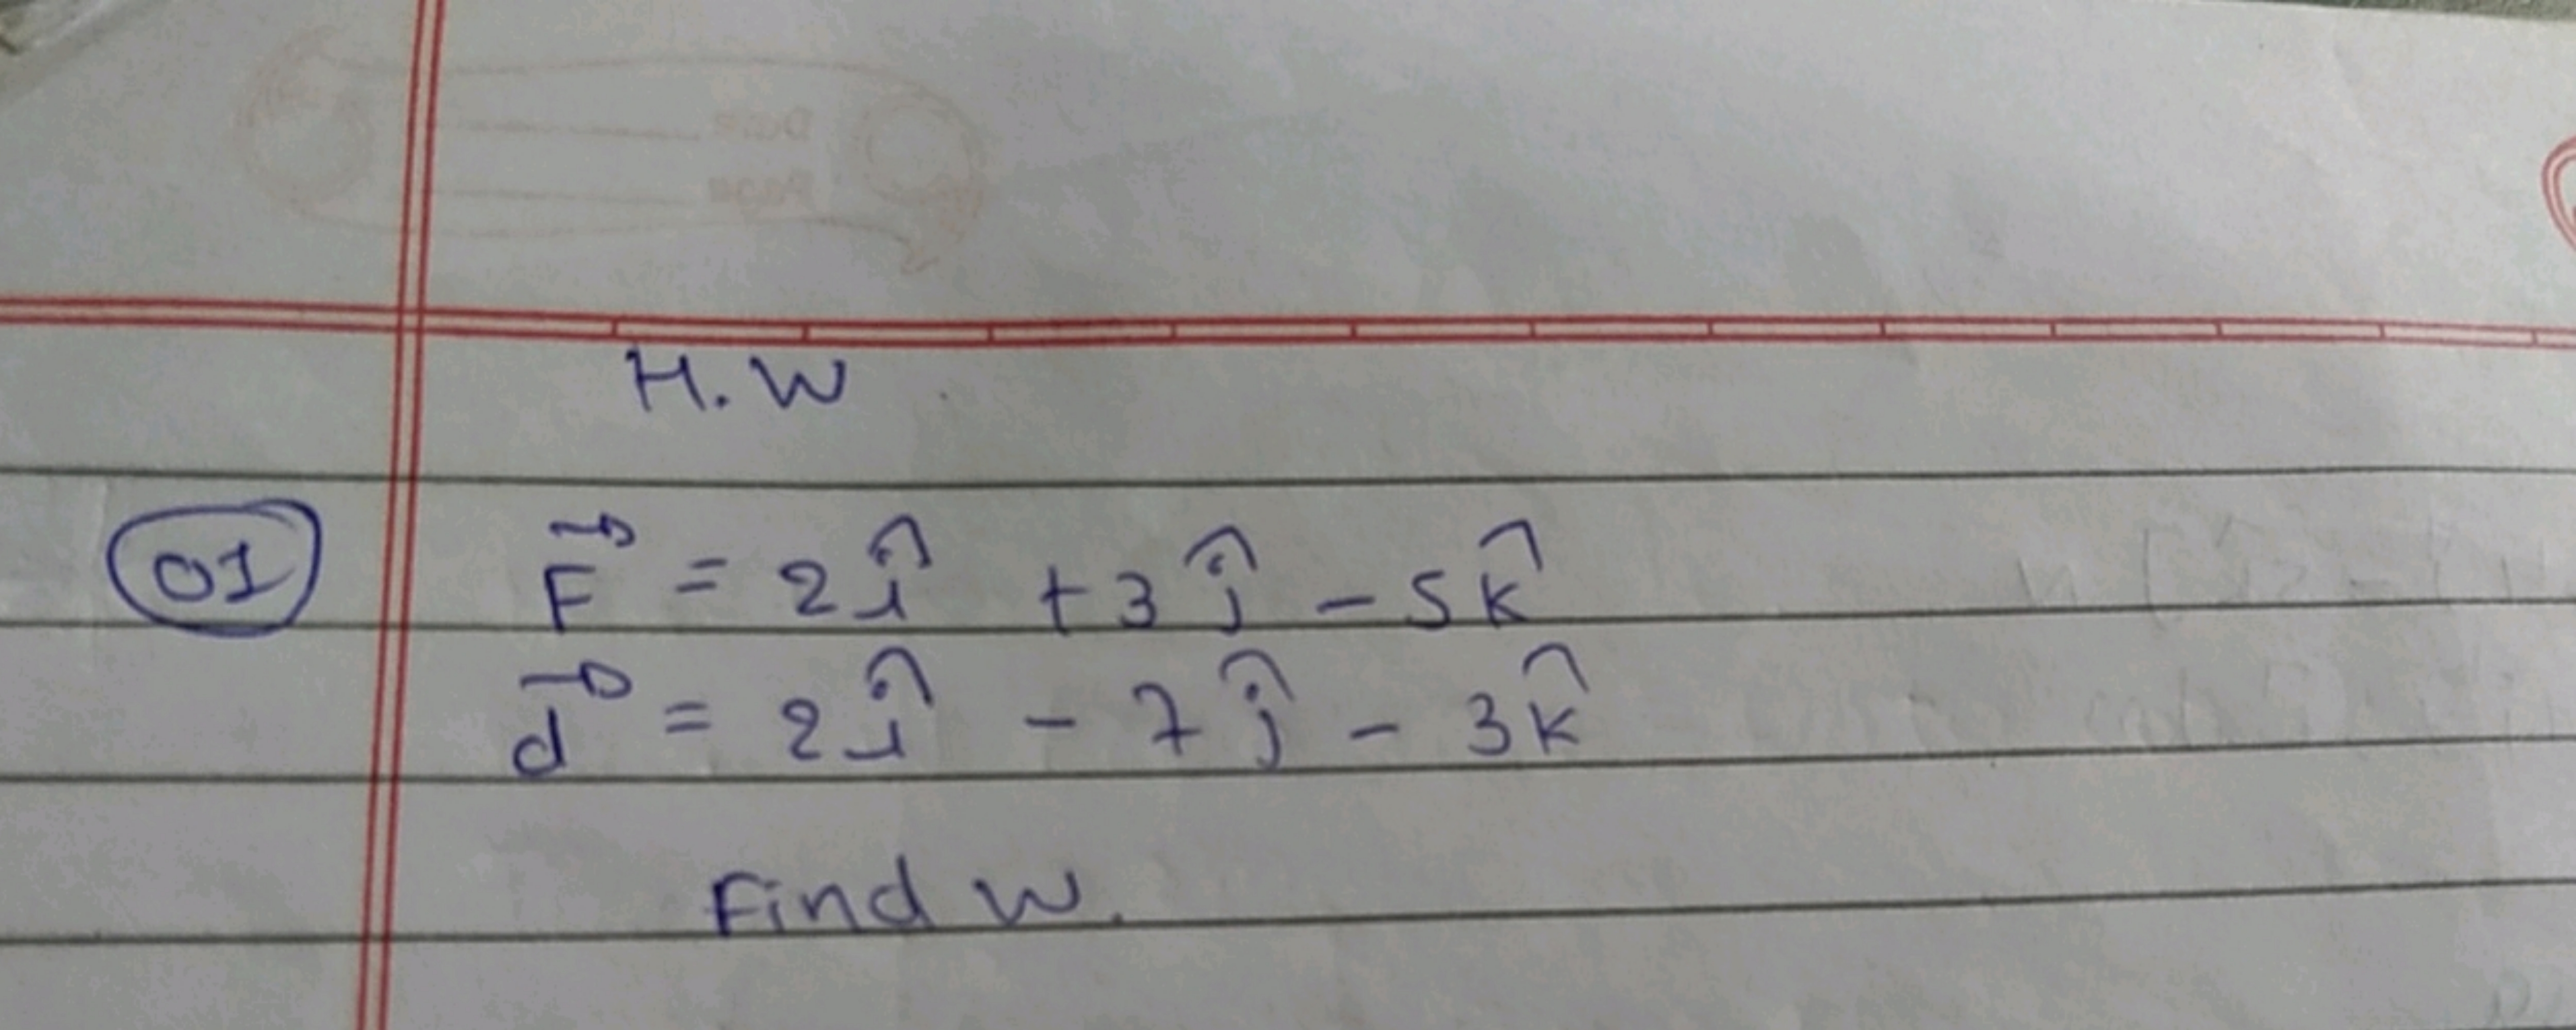 H.W
01 F⃗ = 2î + 3ĵ - 5k̂
d⃗ = 2î - 7ĵ - 3k̂
Find W.